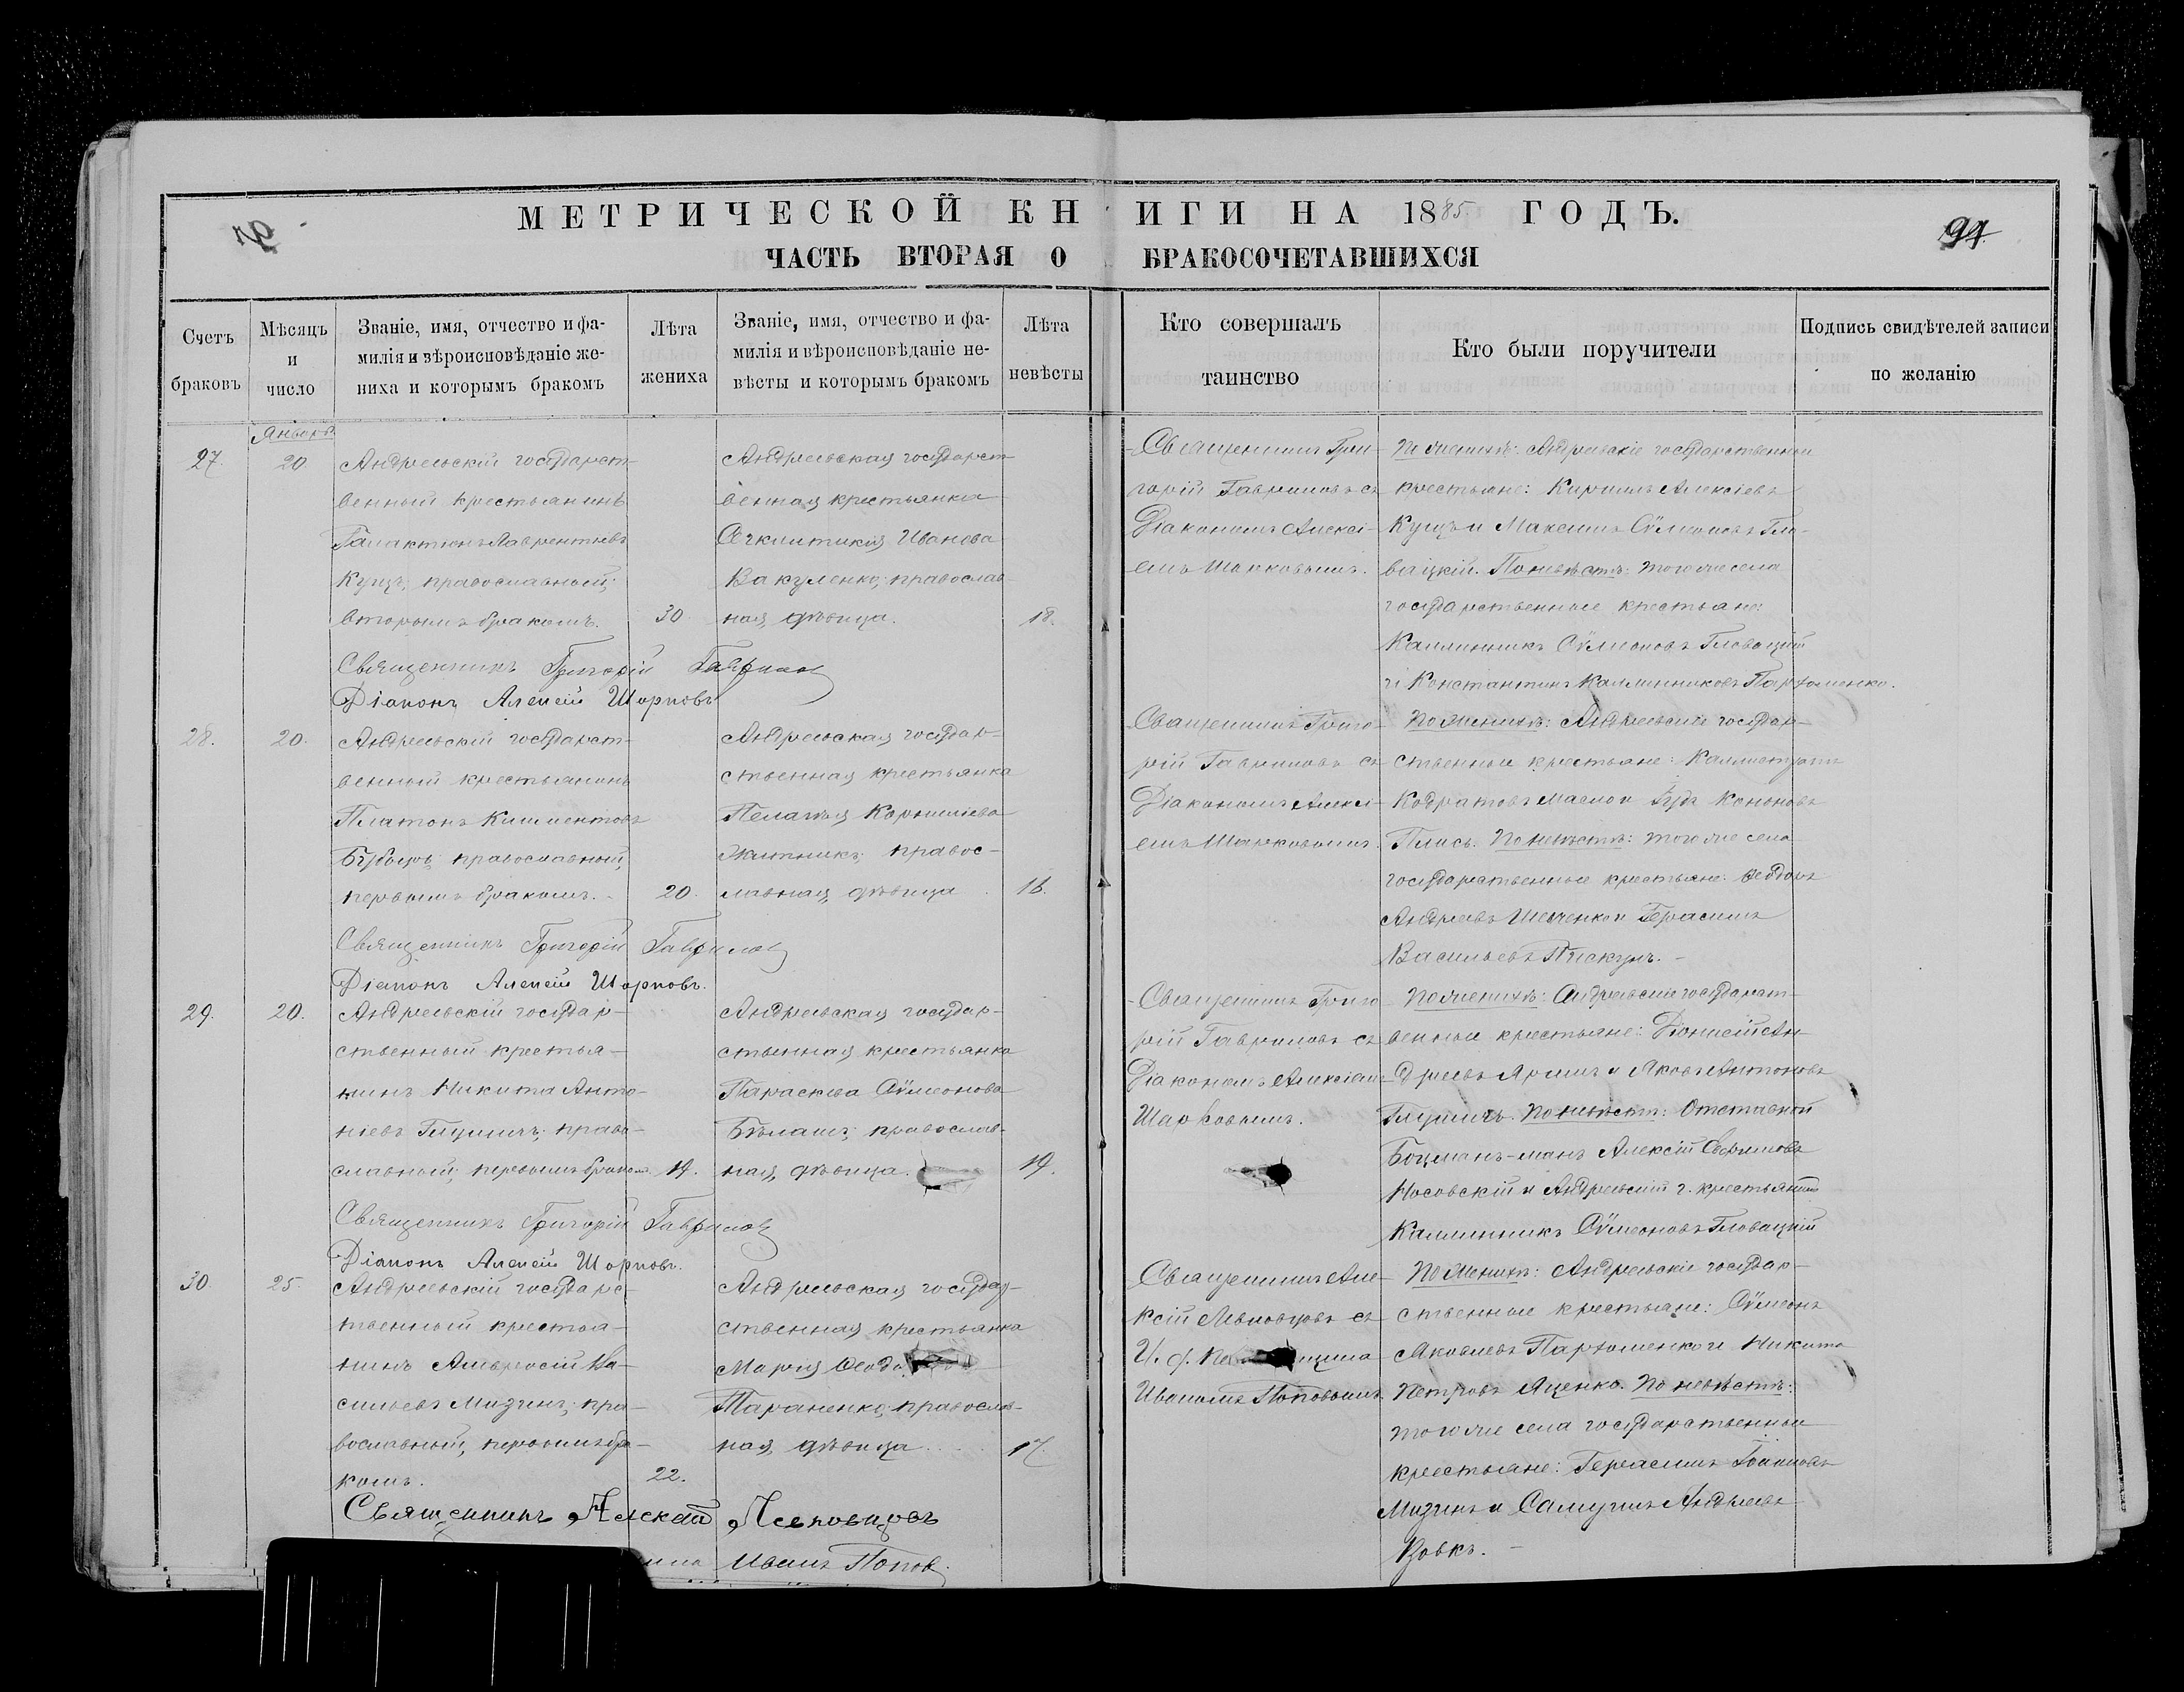 МЕТРИЧЕСКОЙ КНИГИ НА 1885 ГОДЪ.
94
ЧАСТЬ ВТОРАЯ О БРАКОСОЧЕТАВШИХСЯ
Счетъ браковъ
Мѣсяцъ и число
Званіе, имя, отчество и фа-
милія и вѣроисповѣданіе же-
ниха и которымъ бракомъ
Лѣта жениха
Званіе, имя, отчество и фа-
милія и вѣроисповѣданіе не-
вѣсты и которымъ бракомъ
Лѣта невѣсты
Кто совершалъ таинство
Кто были поручители
Подпись свидѣтелей записи
по желанію
Январь
27.
20
Андреевскій государст-
венный крестьянинъ
Галактіонъ Лаврентьевъ
Куцъ, православный,
вторымъ бракомъ.
30
Андреевская государст-
венная крестьянка
Иванова
Вакуленко, православ-
ная, дѣвица.
18.
Священникъ Гри-
горій Гавриловъ съ
Діакономъ Алексі-
емъ Шарковымъ.
По женихѣ: Андреевскіе государственные
крестьяне: Кириллъ Алексіевъ
Куцъ и Максимъ Сѵмеоновъ Гло-
вацкій. По невѣстѣ: того же села
государственные крестьяне:
Каллинникъ Сѵмеоновъ Гловацкій
и Константинъ Каллинниковъ Парфоменко.
Священникъ Григорій Гаврилов
Діаконъ Алексій Шарковъ
28.
20.
Андреевскій государст-
венный крестьянинъ
Платонъ Климентовъ
православный,
первымъ бракомъ.
20.
Андреевская государ-
ственная крестьянка
Пелагія Корниліева
Житникъ, правос-
лавная, дѣвица
18.
Священникъ Григо-
рій Гавриловъ съ
Діакономъ Алексі-
емъ Шарковымъ.
По женихѣ: Андреевскіе государ-
ственные крестьяне: Каллистратъ
Кодратовъ и Кононовъ
По невѣстѣ: того же села
государственные крестьяне: Ѳеодоръ
Андреевъ Шевченко и Герасимъ
Васильевъ Пискунъ.
Священникъ Григорій Гаврилов
Діаконъ Алексій Шарковъ.
29.
20.
Андреевскій государ-
ственный крестья-
нинъ Никита Анто-
ніевъ Глушичъ, право-
славный, первымъ бракомъ
19.
Андреевская государ-
ственная крестьянка
Параскева Сѵмеонова
Бѣлашъ, православ-
ная, дѣвица.
19.
Священникъ Григо-
рій Гавриловъ съ
Діакономъ Алексіемъ
Шарковымъ.
По женихѣ: Андреевскіе государст-
венные крестьяне: Діонисій Ан-
дреевъ Яришъ и Яковъ Антоновъ
Глушичъ. По невѣстѣ: Отставной
Боцманъ-манъ Алексій Евфимовъ
Носовскій и Андреевскій г. крестьянинъ
Каллинникъ Сѵмеоновъ Гловацкій
Священникъ Григорій Гаврилов
Діаконъ Алексій Шарковъ.
30.
25.
Андреевскій государс-
твенный крестья-
нинъ Амвросій Ва-
сильевъ Мизинъ, пра-
вославный, первымъ бра-
комъ.
22.
Андреевская государ-
ственная крестьянка
Марія
Тараненко, православ-
ная, дѣвица
17.
Священникъ Але-
ксій Левковцовъ съ
И. д.
Иваномъ Поповымъ.
По женихѣ: Андреевскіе государ-
ственные крестьяне: Сѵмеонъ
Яковлевъ Парфоменко и Никита
Петровъ Яценко. По невѣстѣ:
того же села государственные
крестьяне: Герасимъ
Мизинъ и Самуилъ Андреевъ
Вовкъ.
Священникъ Алексій Левковцовъ
Иванъ Попов.